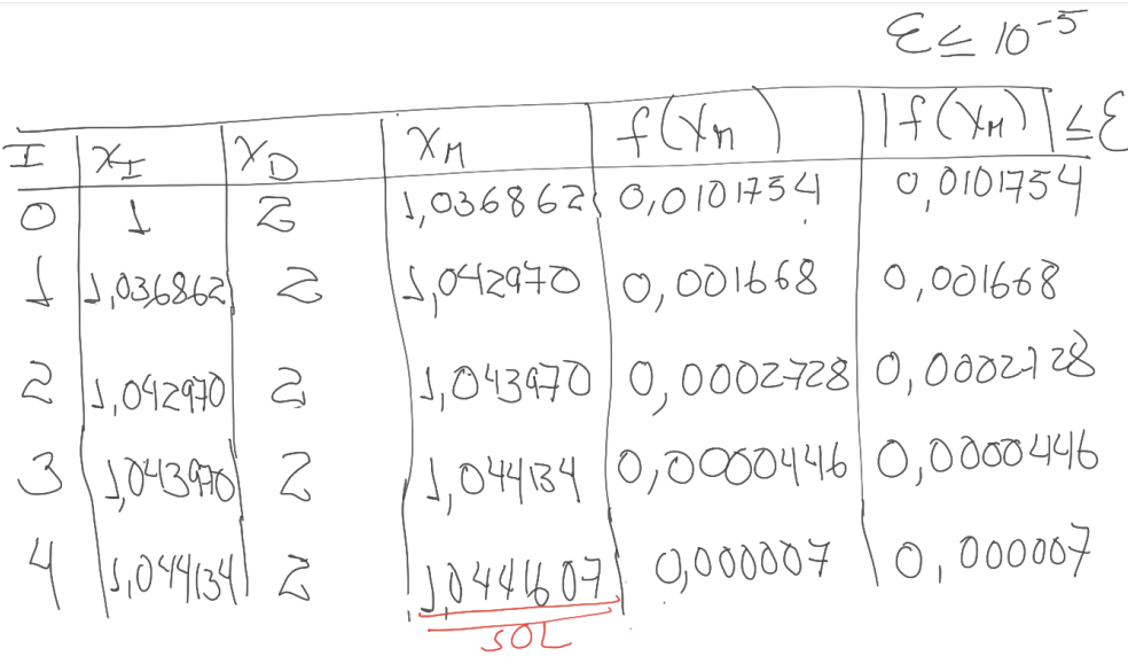 ε ≤ 10⁻⁵
I | x_I | x_D | x_M | f(x_M) | |f(x_M)| ≤ ε
0 | 1 | 2 | 1,036862 | 0,0101754 | 0,0101754
1 | 1,036862 | 2 | 1,042970 | 0,001668 | 0,001668
2 | 1,042970 | 2 | 1,043970 | 0,0002728 | 0,0002728
3 | 1,043970 | 2 | 1,044134 | 0,0000446 | 0,0000446
4 | 1,044134 | 2 | 1,0441607 | 0,000007 | 0,000007
SOL